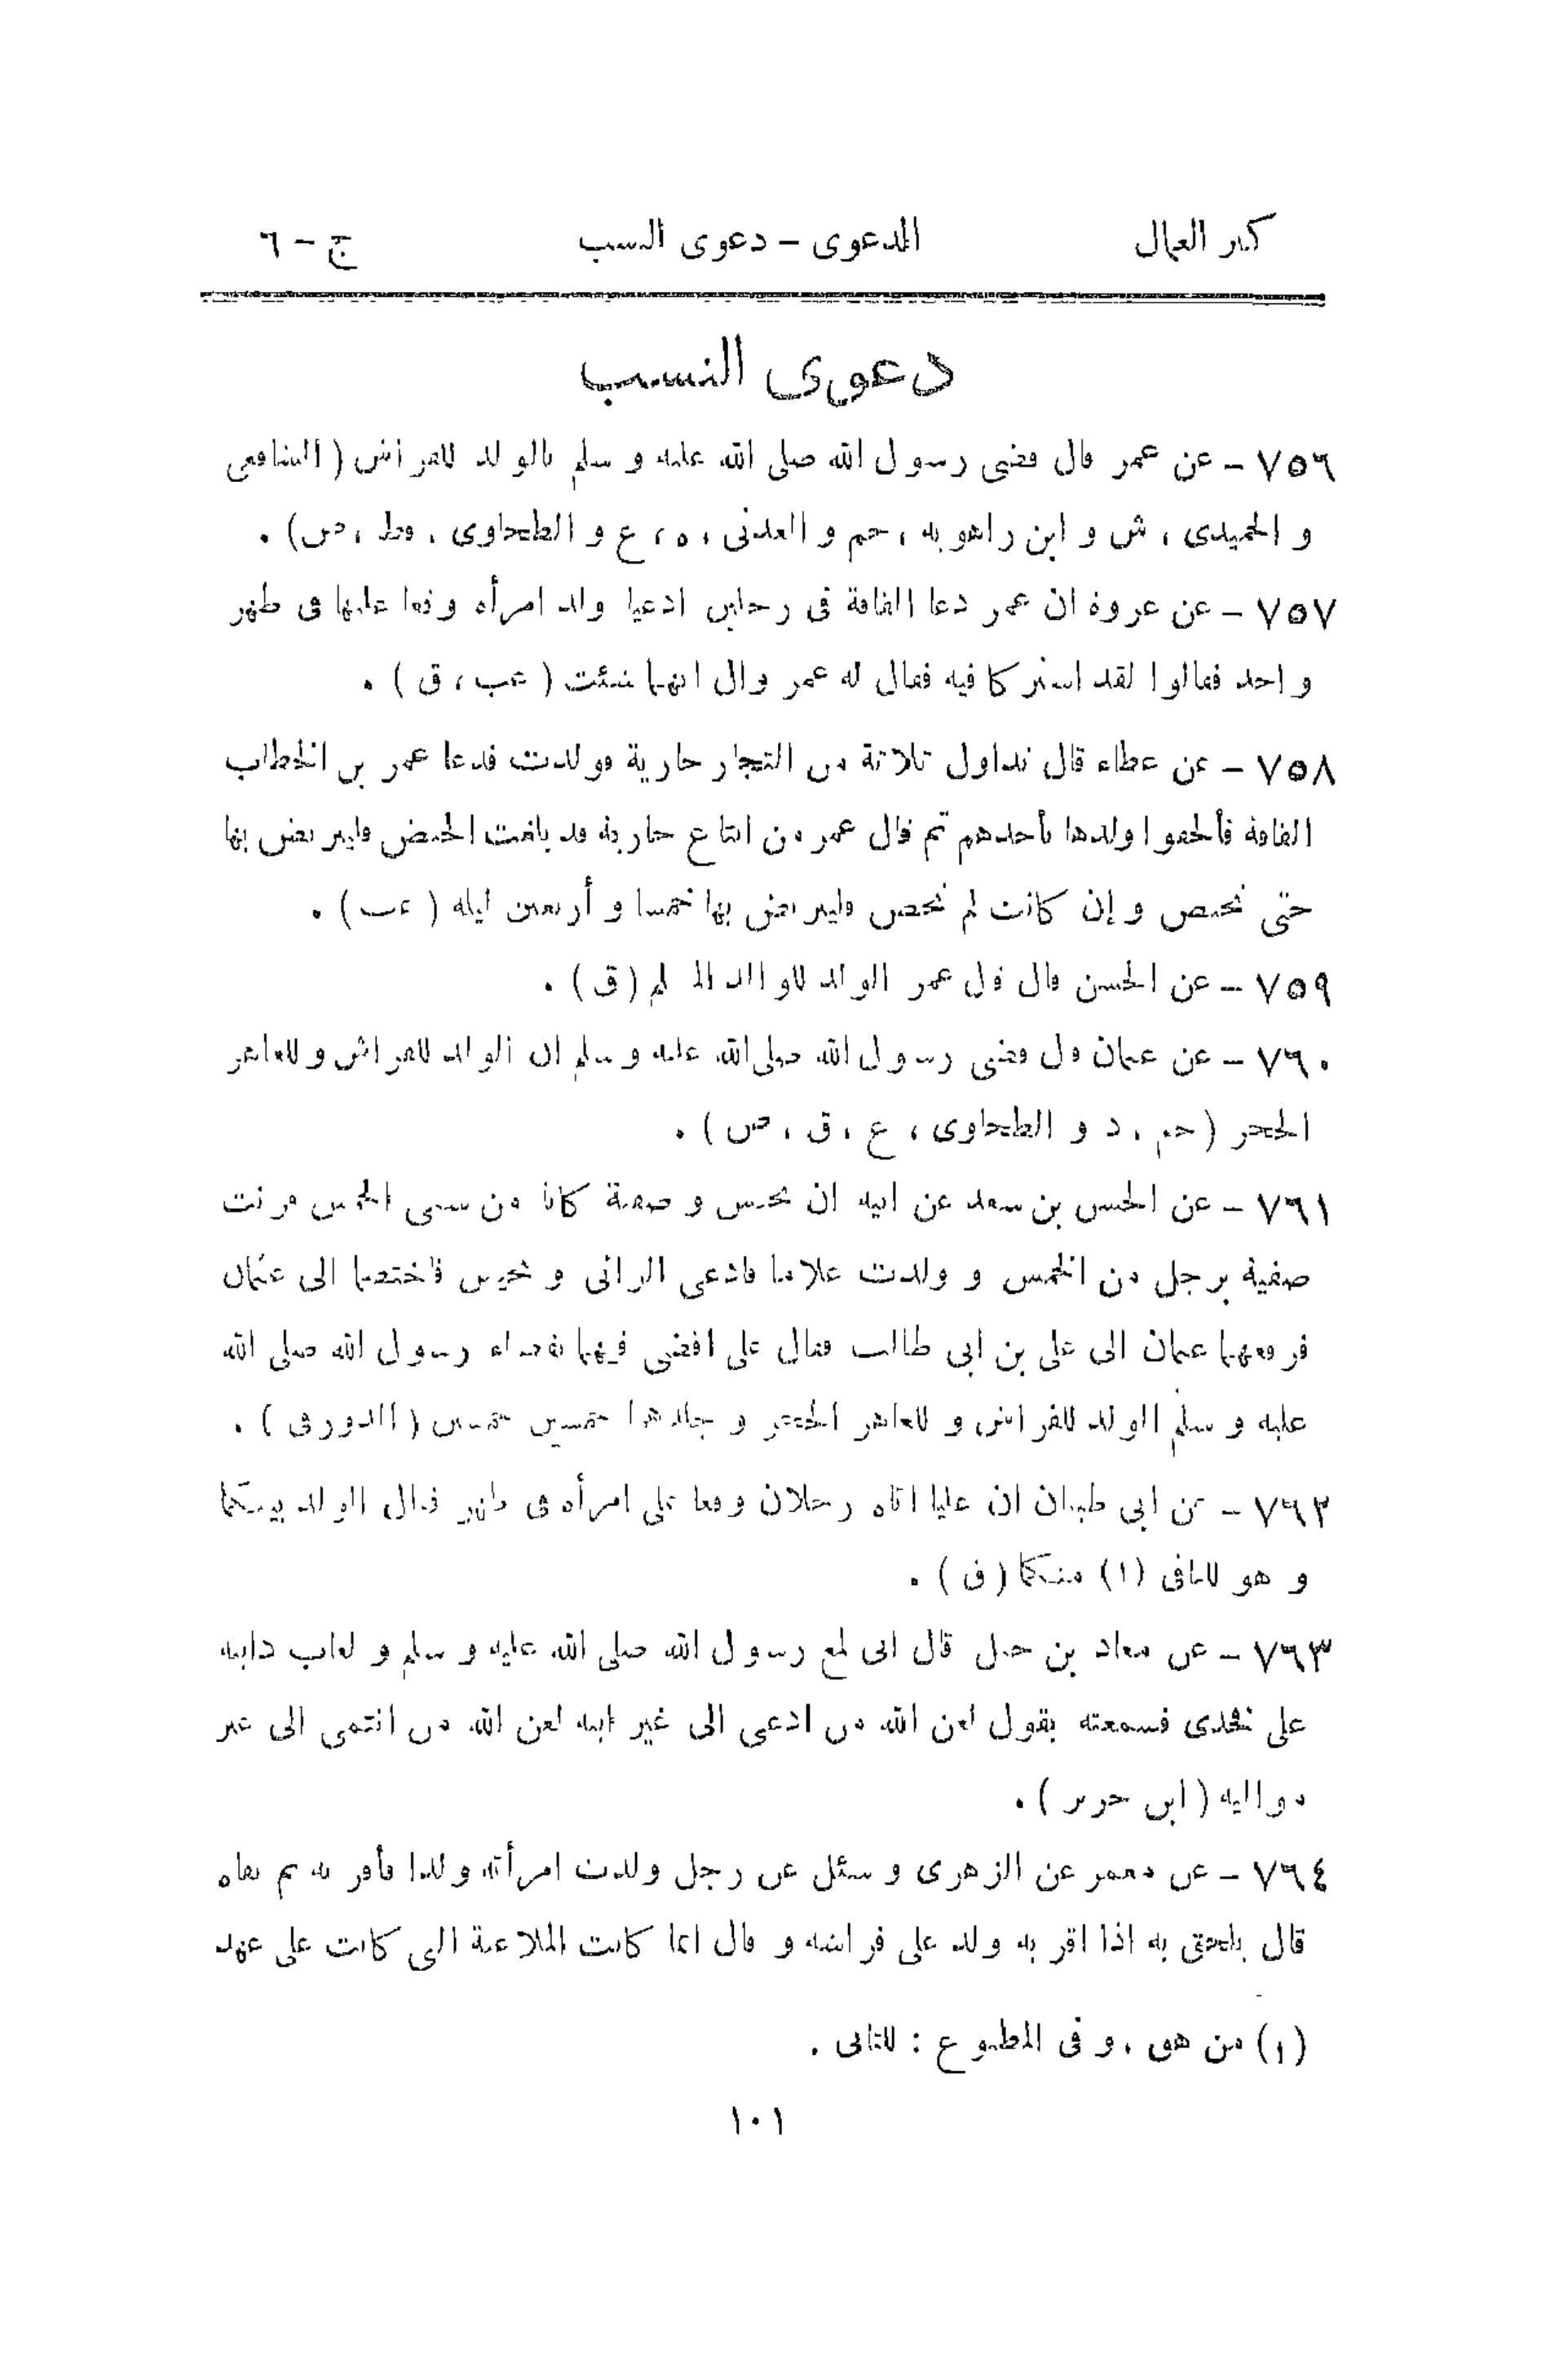 كنز العمال الدعوى – دعوى النسب ج – ٦
دعوى النسب
٧٥٦ – عن عمر قال قضى رسول الله صلى الله عليه و سلم بالولد للفراش ( الشافعى
و الحميدى ، ش و ابن راهويه ، حم و العدنى ، ه ، ع و الطحاوى ، قط ، ص) .
٧٥٧ – عن عروة ان عمر دعا القافة فى رجلين ادعيا ولد امرأة وقعا عليها فى طهر
واحد فقالوا لقد اشتركا فيه فقال له عمر وال ايهما شئت ( عب ، ق ) .
٧٥٨ – عن عطاء قال تداول ثلاثة من التجار جارية فولدت فدعا عمر بن الخطاب
القافة فألحقوا ولدها بأحدهم ثم قال عمر من ابتاع جارية قد بلغت الحيض فليتربص بها
حتى تحيض و إن كانت لم تحض فليتربص بها خمسا و أربعين ليلة ( عب ) .
٧٥٩ – عن الحسن قال قال عمر الولد للوالد المسلم ( ق ) .
٧٦٠ – عن عثمان قال قضى رسول الله صلى الله عليه و سلم ان الولد للفراش و للعاهر
الحجر ( حم ، د و الطحاوى ، ع ، ق ، ص ) .
٧٦١ – عن الحسن بن سعد عن ابيه ان يحنس و صفية كانا من سبى الخمس فزنت
صفية برجل من الخمس و ولدت غلاما فادعى الزانى و يحنس فاختصما الى عثمان
فرفعهما عثمان الى على بن ابى طالب فقال على اقضى فيهما بقضاء رسول الله صلى الله
عليه و سلم الولد للفراش و للعاهر الحجر و جلدهما خمسين خمسين ( الدورقى ) .
٧٦٢ – عن ابى ظبيان ان عليا اتاه رجلان وقعا على امرأة فى طهر فقال الولد بينكما
و هو للباقى (١) منكما ( ق ) .
٧٦٣ – عن معاذ بن جبل قال انى لمع رسول الله صلى الله عليه و سلم و لعاب دابته
على فخذى فسمعته يقول لعن الله من ادعى الى غير ابيه لعن الله من انتمى الى غير
مواليه ( ابن جرير ) .
٧٦٤ – عن معمر عن الزهرى و سئل عن رجل ولدت امرأته ولدا فأقر به ثم نفاه
قال يلحق به اذا اقر به ولد على فراشه و قال انما كانت الملاعنة التى كانت على عهد
(١) من هق ، و فى المطبوع : للثانى .
١٠١